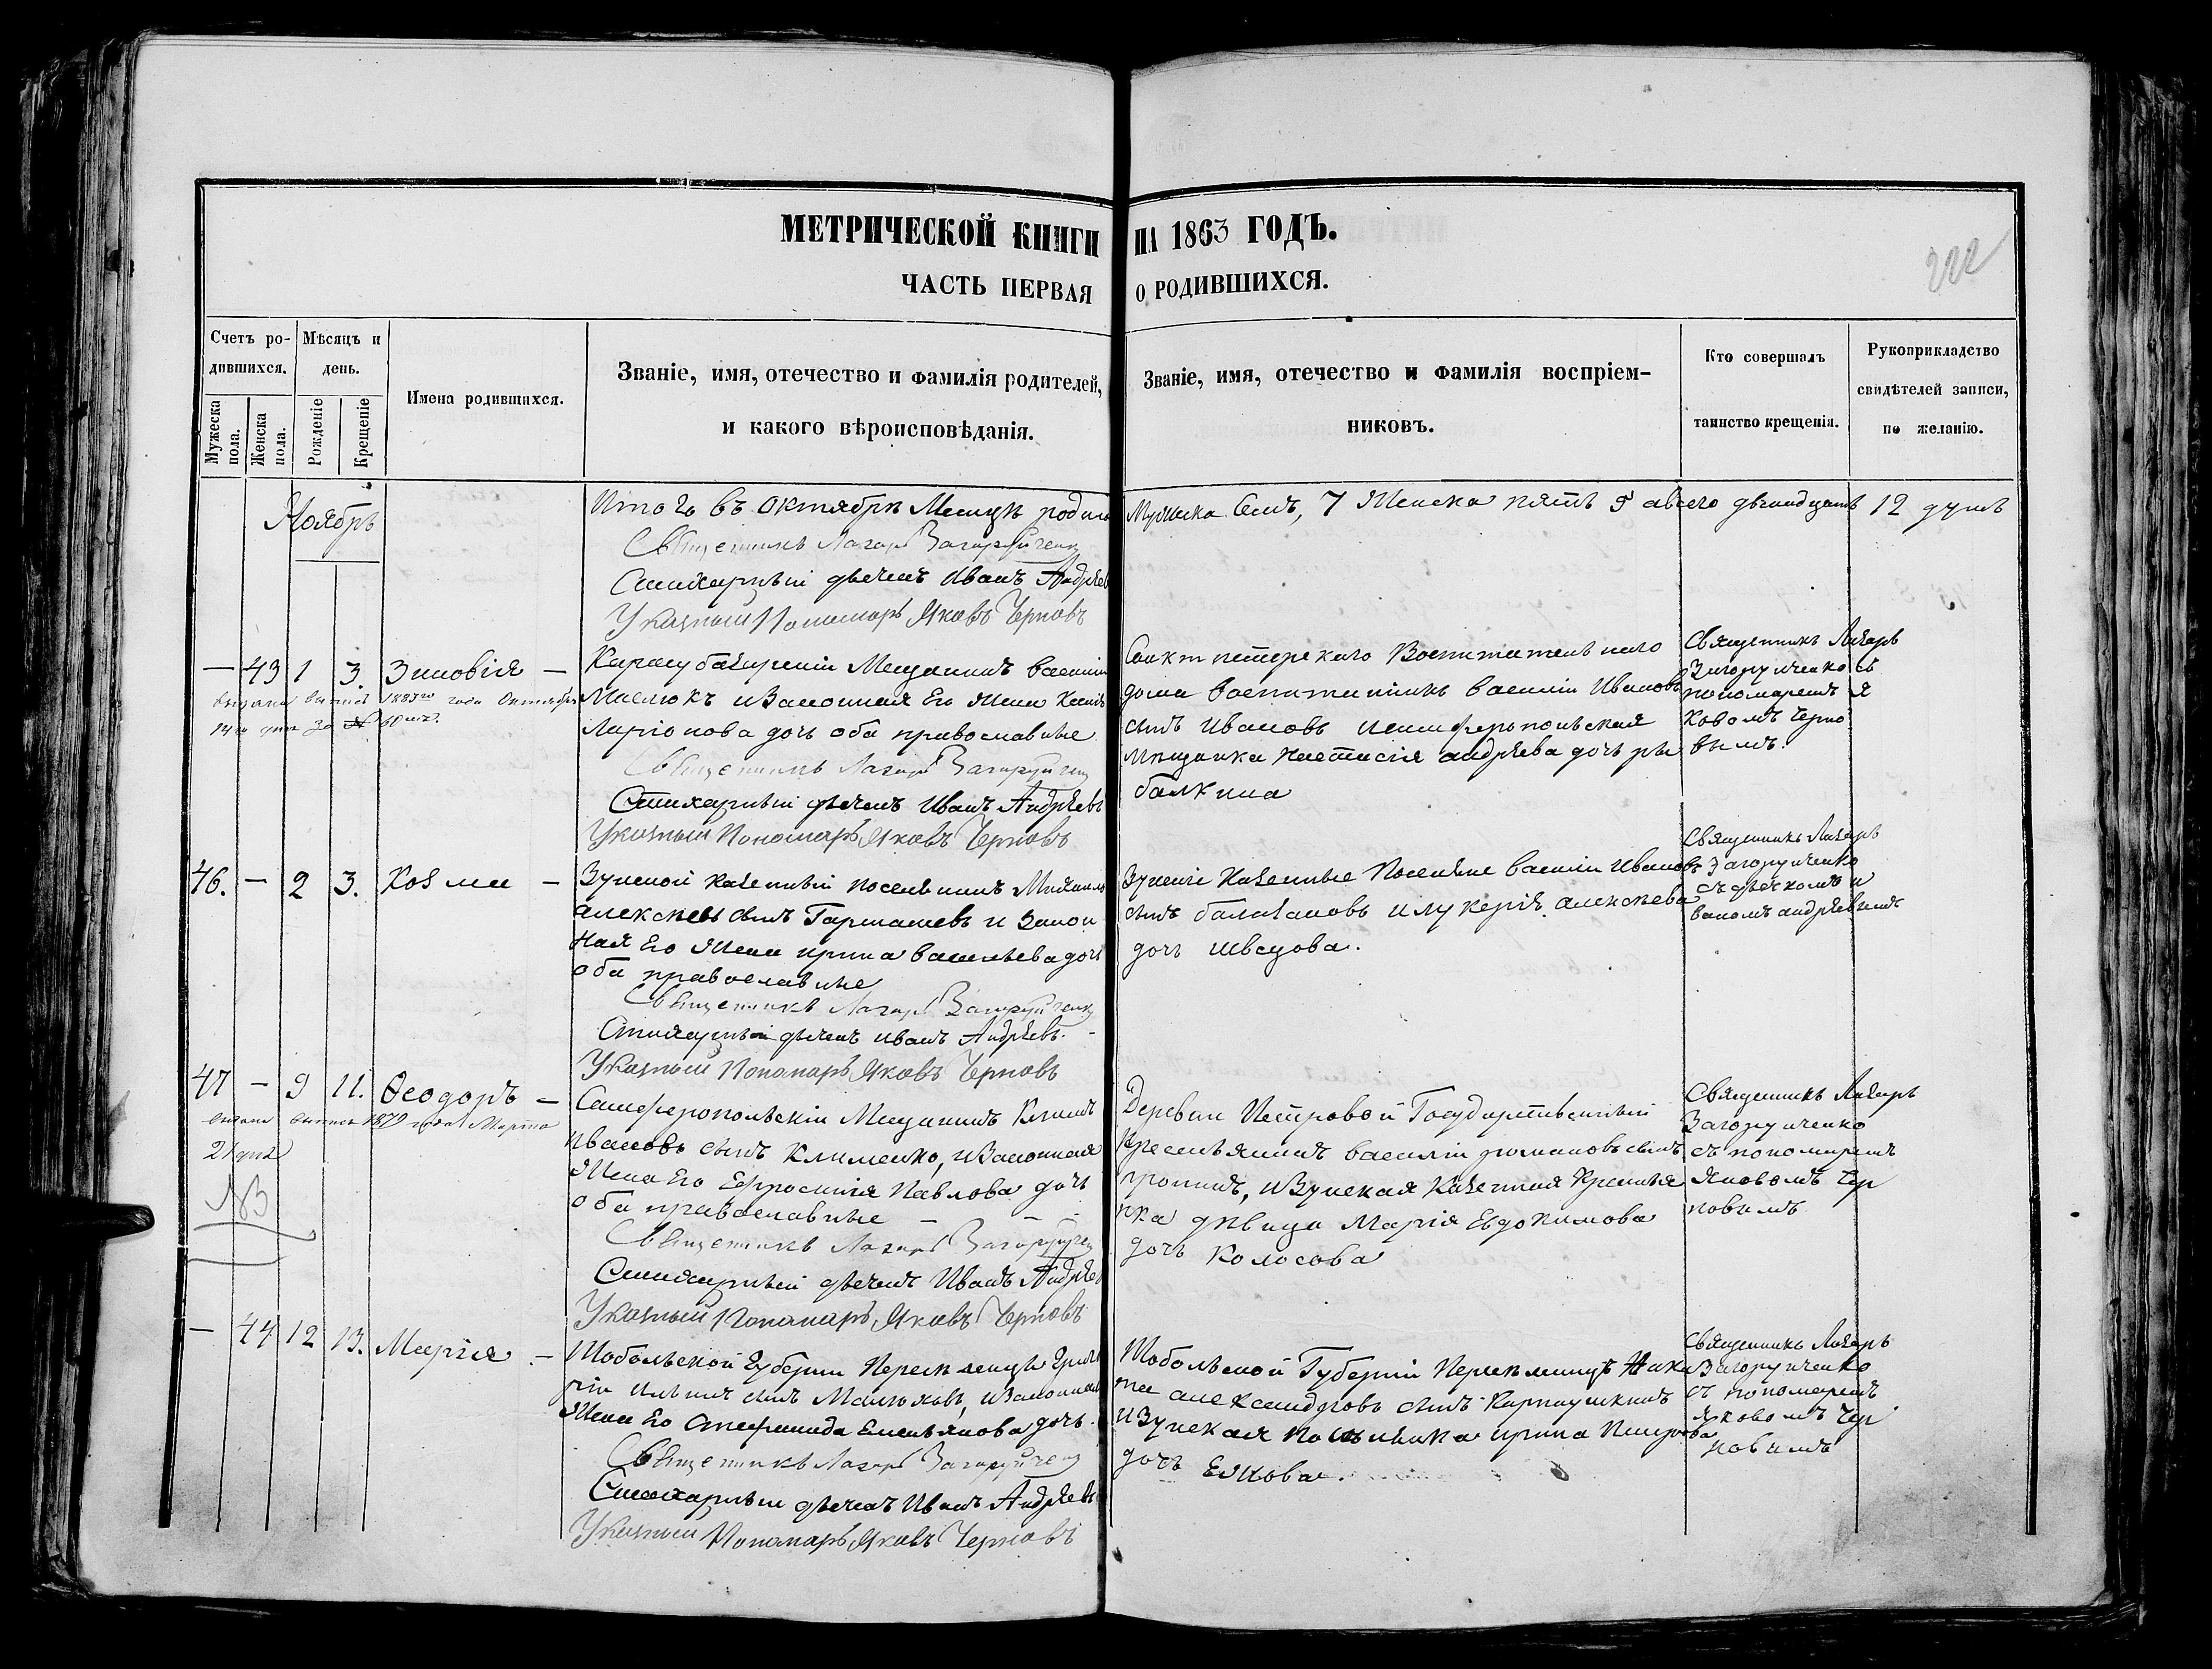 МЕТРИЧЕСКОЙ КНИГИ НА 1863 ГОДЪ.
ЧАСТЬ ПЕРВАЯ О РОДИВШИХСЯ.
222
Счетъ ро-
дившихся.
Мужеска пола.
Женска пола.
Мѣсяцъ и
день.
Рожденіе
Крещеніе
Имена родившихся.
Званіе, имя, отечество и фамилія родителей,
и какого вѣроисповѣданія.
Званіе, имя, отечество и фамилія воспріем-
никовъ.
Кто совершалъ
таинство крещенія.
Рукоприкладство
свидѣтелей записи,
по желанію.
Ноябрь
Итого въ Октябрѣ Месицѣ родил
Мужеска Семъ, 7 Женска пять 5 авсего двенадцать 12 душъ
Священникъ Лазарь Загоруйченко
Стихарный дьячекъ Иванъ Андрѣев
Указный Пономарь Яковъ Черновъ
— 43 1 3. Зиновія —
выдана выпись 1883го года Октября
14го дня за № 60
Карасубазарскій Мещанинъ василій
Маслюкъ изаконная Его Жена
Ларіонова дочь оба православные
Священникъ Лазарь Загоруйченко
Стихарный дьячекъ Иванъ Андрѣевъ
Указный Пономарь Яковъ Черновъ
Санктпетерскаго Воспитательнаго
дома воспитаникъ василій Ивановъ
сынъ Ивановъ исимферопольская
мѣщанка Настасія андрѣева дочь ры
балкина
Священникъ Лазарь
Загоруйченко съ
пономаремъ Я
ковомъ Черно
вымъ.
46. — 2 3. Козма —
Зуйской Казенный поселянинъ Михаилъ
алексѣевъ сынъ Гармашевъ и Закон
ная Его Жена ирина васильева дочь
оба православные
Священникъ Лазарь Загоруйченко
Стихарный дьячекъ иванъ Андрѣевъ. -
Указный Пономарь Яковъ Черновъ
Зуйскіе Казенные Поселяне василій Ивановъ
сынъ балабановъ илукерія алексѣева
дочь швецова.
Священникъ Лазарь
Загоруйченко
съ дьячкомъ и
ваномъ андрѣевымъ
47 — 9 11. Ѳеодоръ —
выдана выпись 1879 года Марта
21 дня
NB
Симферопольскій Мещанинъ Климъ
ивановъ сынъ Клименко, изаконная
Жена Его Ефросинія Павлова дочь
оба православные — — -
Священникъ Лазарь Загоруйченко
Стихарный дьячекъ Иванъ Андрѣев
Указный Пономарь Яковъ Черновъ
Деревни Петровой Государственный
Крестьянинъ василій романовъ сынъ
пронинъ, иЗуйская Казенная Крестья
нка дѣвица Марія Евдокимова
дочь Колосова
Священникъ Лазарь
Загоруйченко
съ пономаремъ
Яковомъ Чер
новымъ
— 44 12 13. Марія —
Тобольской Губерніи Переселенцъ Григо
рій Ильинъ сынъ Маслюковъ, изаконная
Жена Его Стефанида Емельянова дочь.
Священникъ Лазарь Загоруйченко
Стихарный дьячекъ Иванъ Андрѣевъ
Указный Пономарь Яковъ Черновъ
Тобольской Губерніи Переселенцъ Ники
та александровъ сынъ Карпаушкинъ
иЗуйская поселянка ирина Петрова
дочь Ежкова.
Священникъ Лазарь
Загоруйченко
съ пономаремъ
яковомъ Чер
новымъ